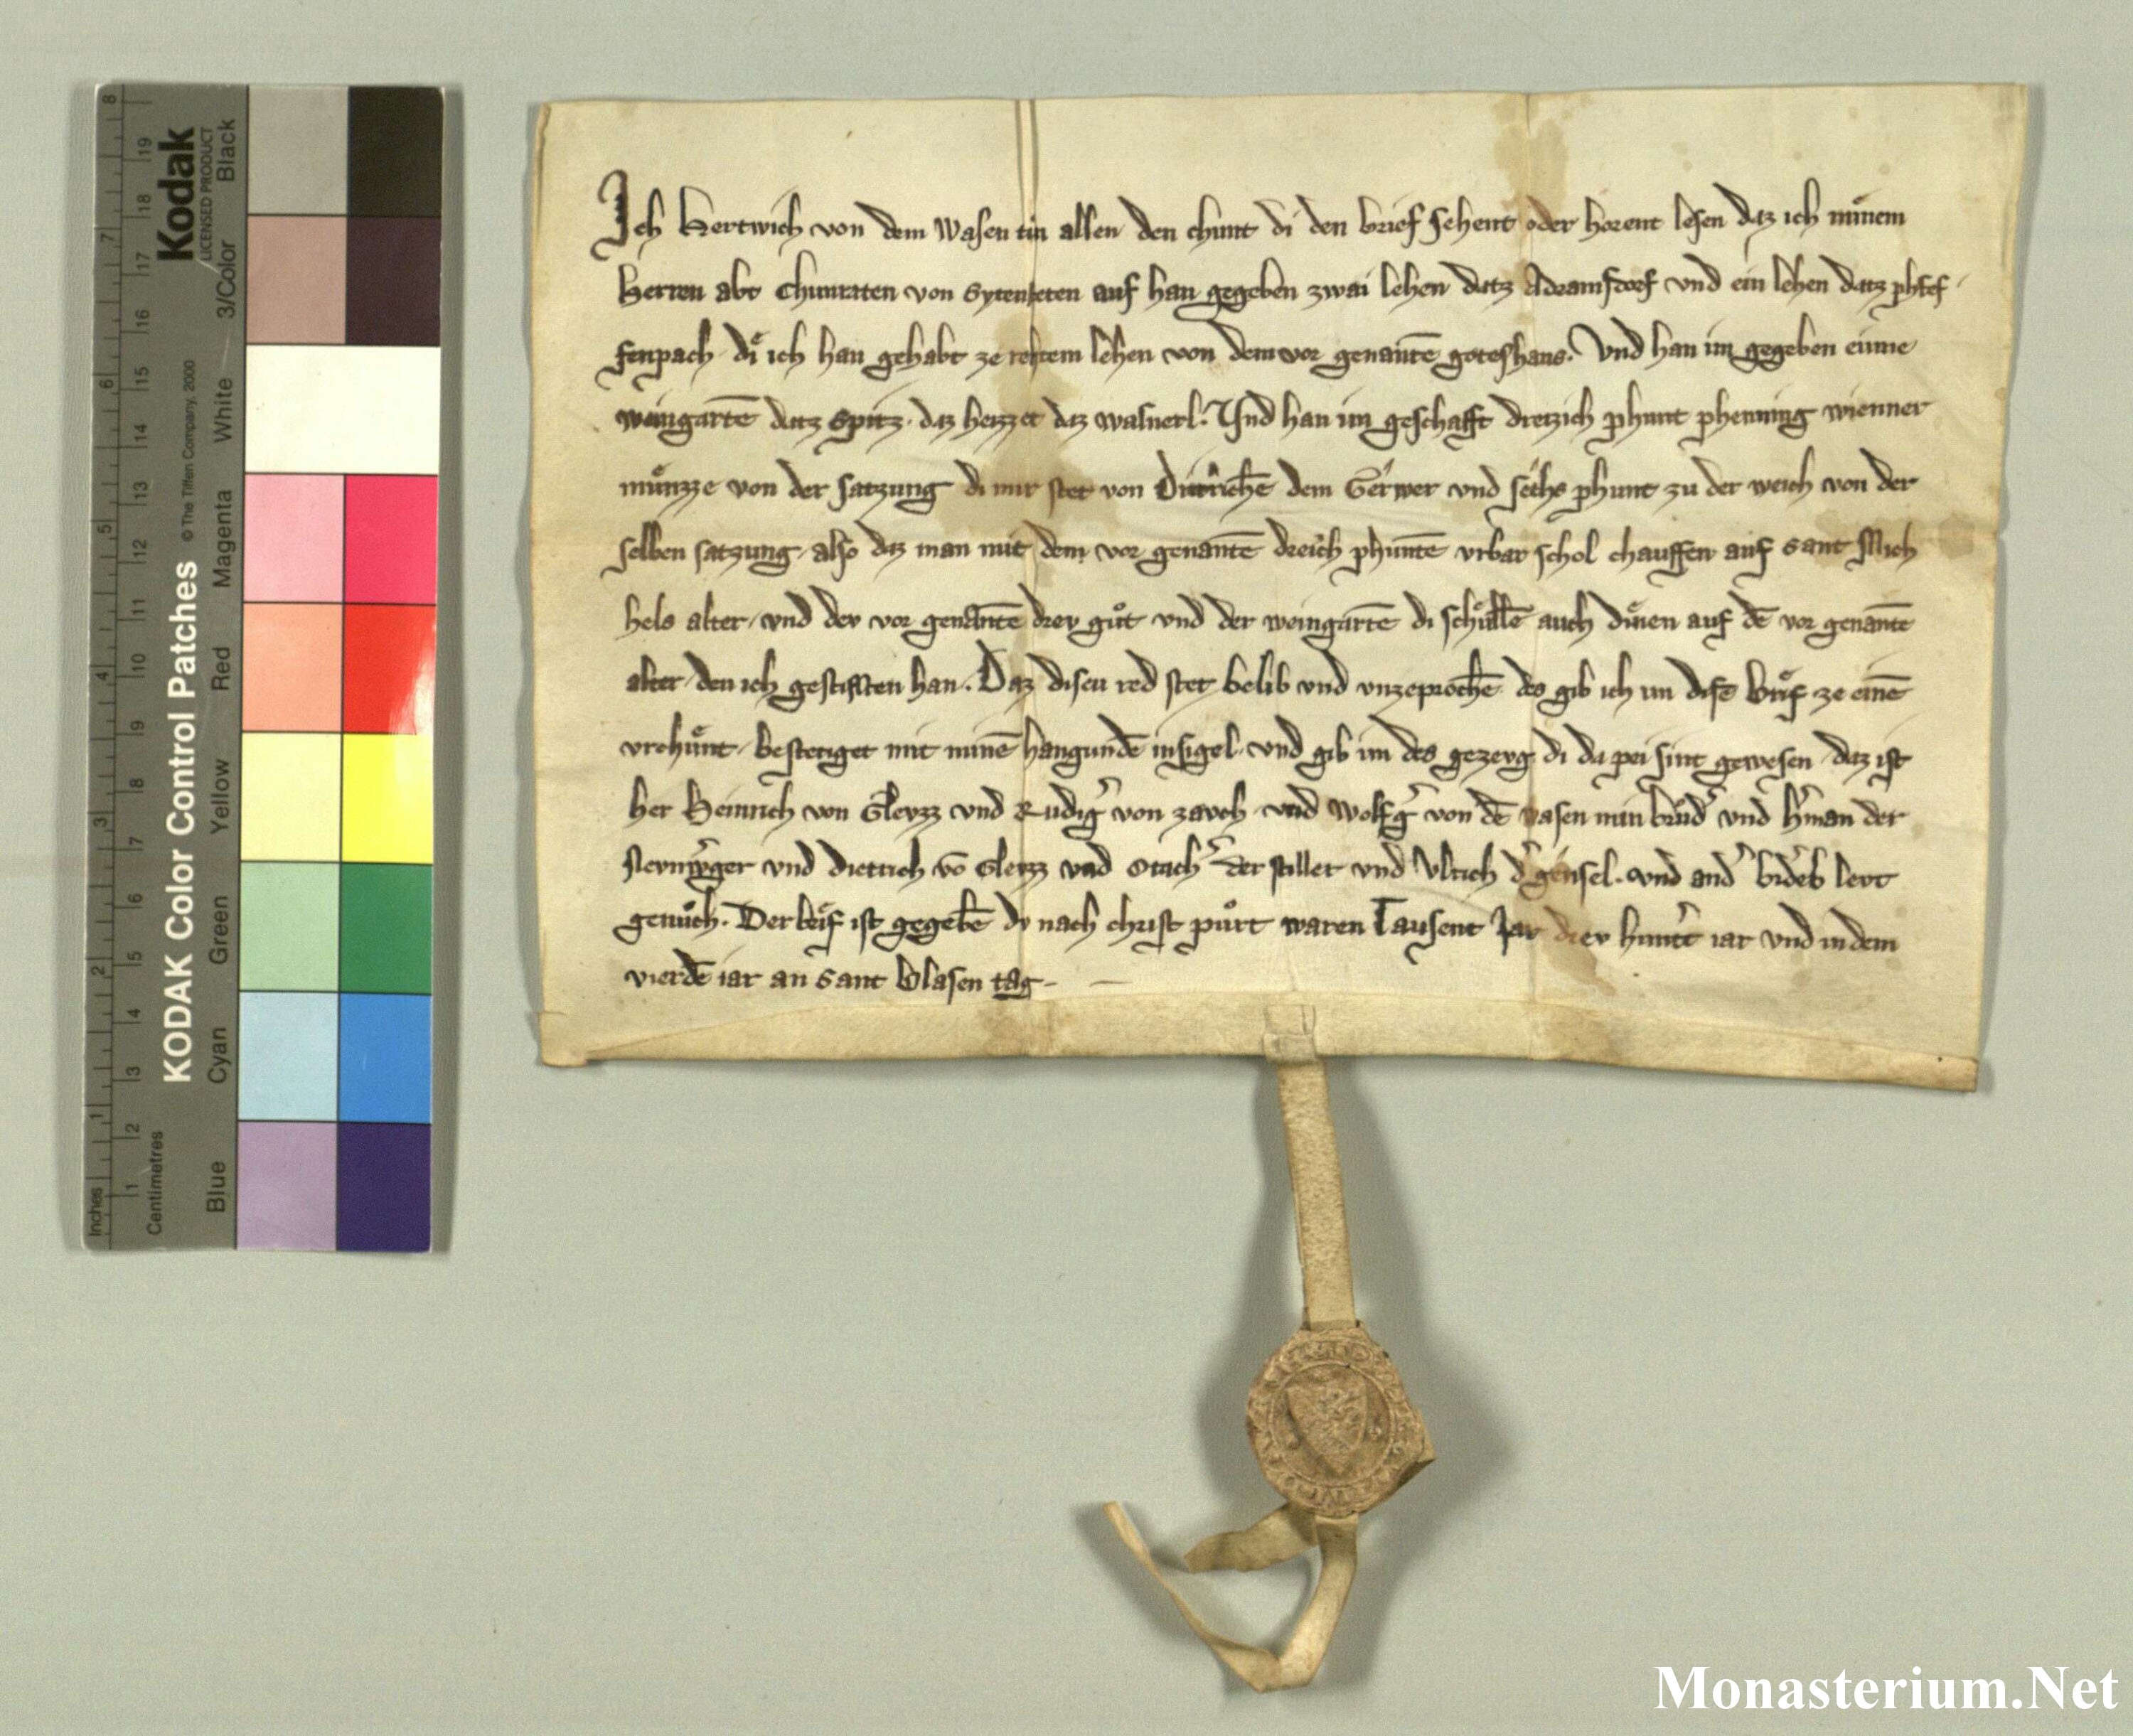 Ich Hertwich von dem Wasen tun allen den chunt di den brief sehent oder horent lesen daz ich minem
herren abt Chunraten von Sytensteten auf han gegeben zwai lehen datz Adramsdorf vnd ein lehen datz phfef
fenpach di ich han gehabt ze rehtem lehen von dem vor genantē goteshaus. Vnd han im gegeben einne
weingartē datz Spitz. daz heizzet daz wasnerl. Vnd han im geschafft dreizich phunt phenning wienner
mu̍nzze von der satzung di mir stet von Dittrichē dem Gerwer vnd sechs phunt zu der weich von der
selben satzung, also daz man mit dem vor genantē dreich phuntē vrbar schol chauffen auf sant Mich
hels alter, vnd dev vor genantē drev guͦt vnd der weingartē di schullē auch dinen auf dē vor genantē
alter, den ich gestifften han. Daz diseu red stet belib vnd vnzeprochē des gib ich im disē brif ze einē
vrchunt, bestetiget mit minē hangundē insigel. vnd gib im des gezevg di da pei sint gewesen daz ist
her Heinrich von Glevzz vnd Rudigˀ von zavch vnd Wolfgˀ von dē wasen min brudˀ vnd hˀman der
vnd diettrich vō Glevzz vnd Otachˀ der stiller vnd Vlrich dˀ gensel. vnd andˀ levt
genuͦch. Der brif ist gegebē do nach christ puͦrt waren Tausent Jar drev huntˀt iar vnd in dem
vierdē iar an sant blasen tag
8
19
18
7
17
16
6
15
14
13
5
12
11
4
10
9
8
3
7
6
2
5
4
3
1
2
1
Inches
Centimetres
Kodak
LICENSED PRODUCT
© The Tiffen Company, 2000
KODAK Color Control Patches
Black
3/Color
White
Magenta
Red
Yellow
Green
Cyan
Blue
Monasterium.Net